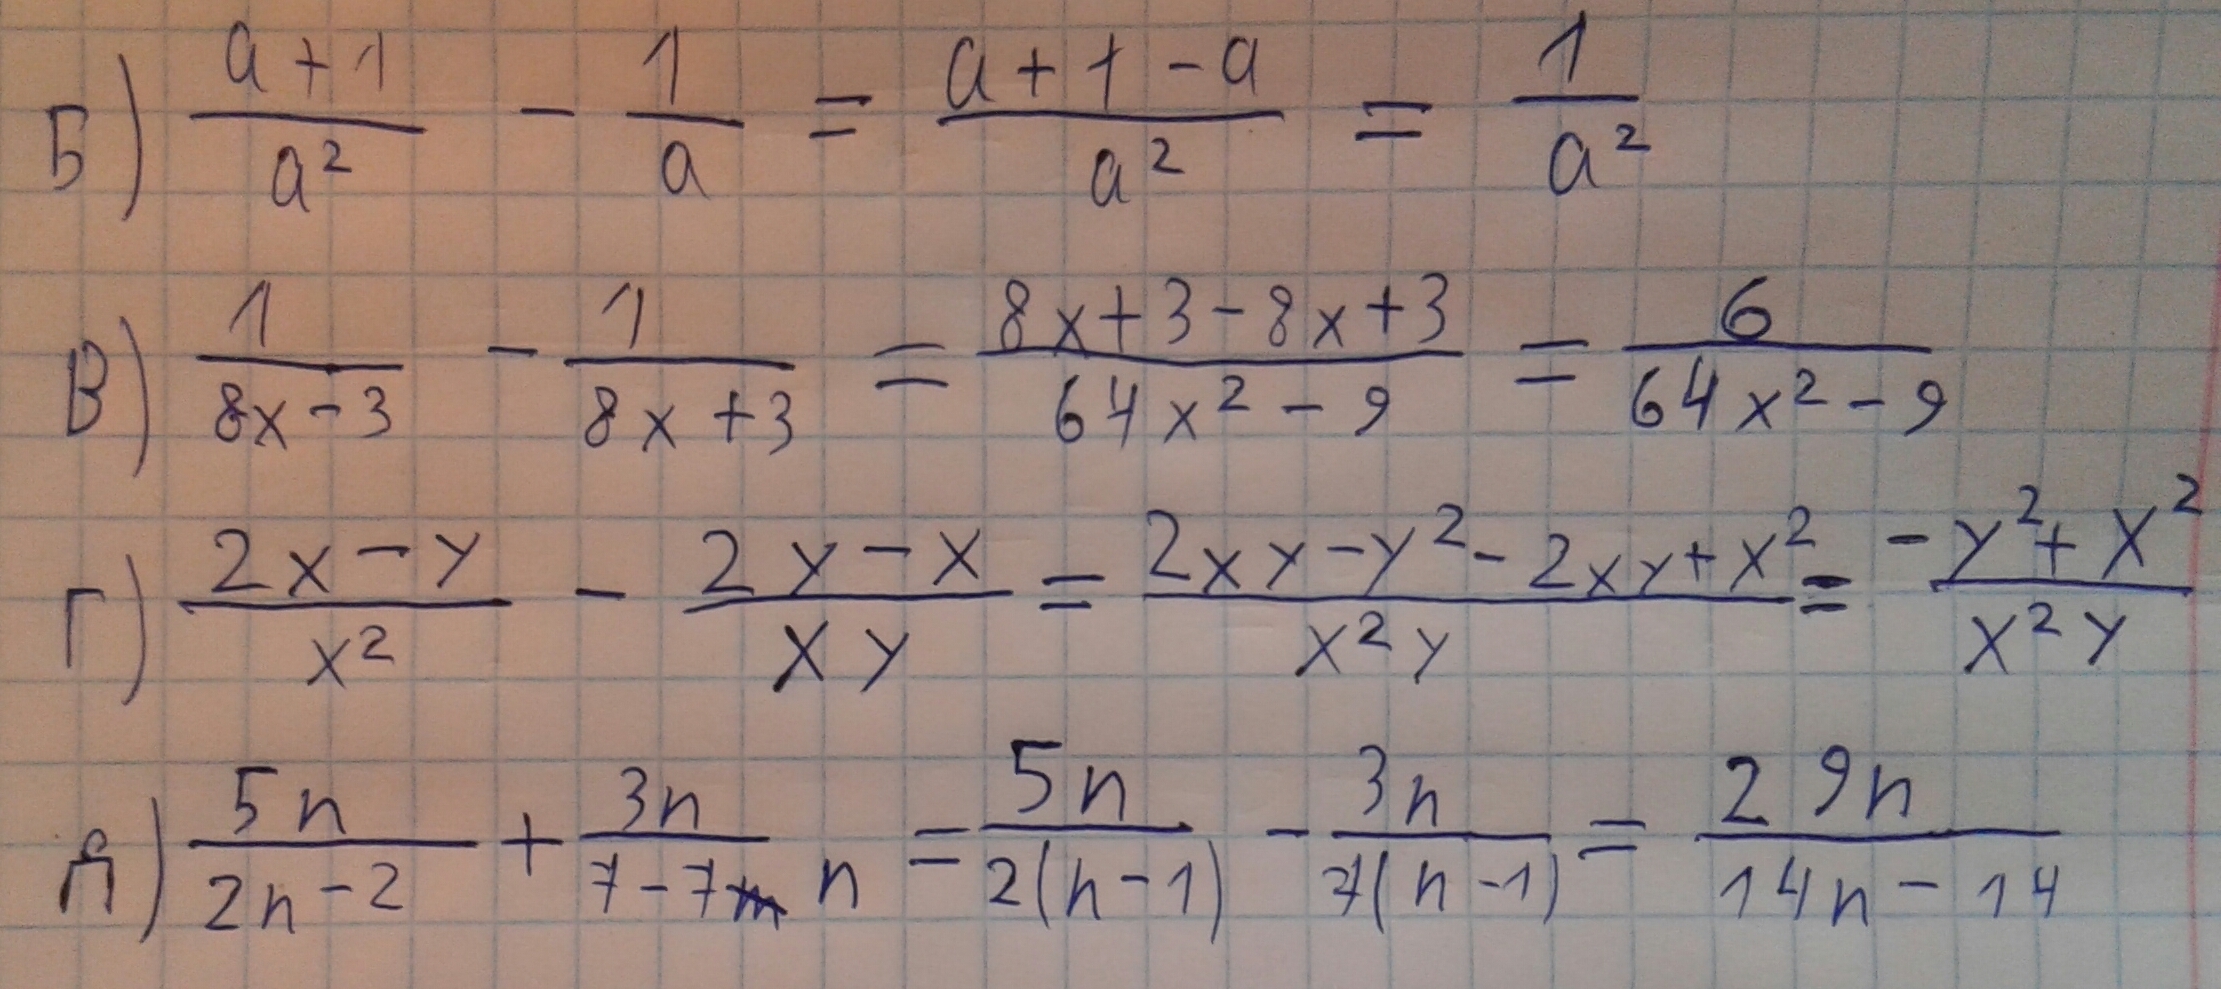 Б) \frac{a+1}{a^2} - \frac{1}{a} = \frac{a+1-a}{a^2} = \frac{1}{a^2}
В) \frac{1}{8x-3} - \frac{1}{8x+3} = \frac{8x+3-8x+3}{64x^2-9} = \frac{6}{64x^2-9}
Г) \frac{2x-y}{x^2} - \frac{2y-x}{xy} = \frac{2xy-y^2-2xy+x^2}{x^2y} = \frac{-y^2+x^2}{x^2y}
Д) \frac{5n}{2n-2} + \frac{3n}{7-7n} = \frac{5n}{2(n-1)} - \frac{3n}{7(n-1)} = \frac{29n}{14n-14}